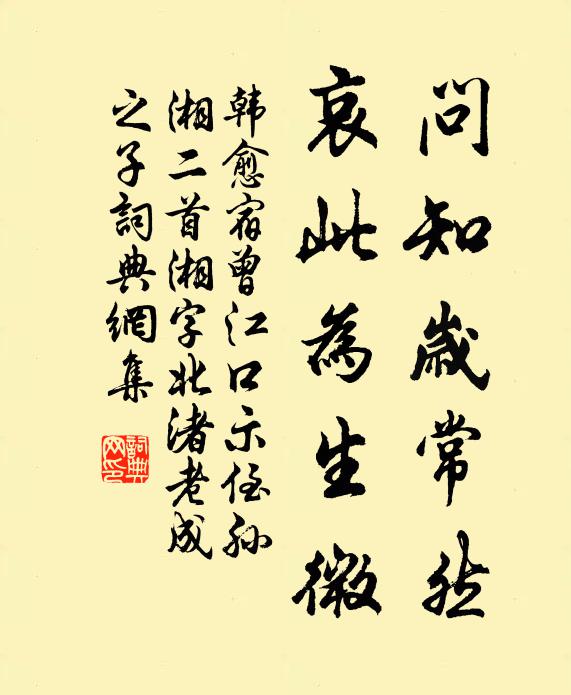 問知歲常然
哀此為生微
韩愈宿曾江口示侄孙
湘二首湘字北渚老成
之子詞典網集
詞典
网印